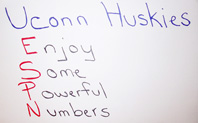 Uconn Huskies
Enjoy
Some
Powerful
Numbers